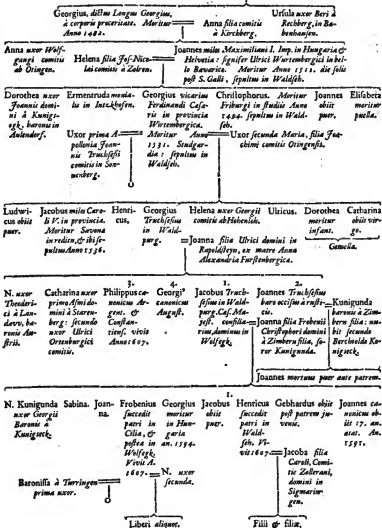 Georgius, dictus Longus Georgius, à corporis proceritate. Moritur Anno 1482.
Anna filia comitis à Kirchberg.
Ursula uxor Beri à Rechberg, in Babenhausen.
Anna uxor Wolfgangi comitis ab Otingen.
Helena filia Jos-Nicolai comitis à Zolren.
Joannes miles Maximiliani I. Imp. in Hungaria & Helvetia: signifer Ulrici Wurtembergici in bello Bavarico. Moritur Anno 1511. die solis post S. Galli, sepultus in Waldseh.
Dorothea uxor Joannis domini à Kunigsegk, baronis in Aulendorf.
Ermentruda monialis in
Georgius vicarius Ferdinandi Cæsaris in provincia Wirtembergica. Moritur Anno 1531. Studgardia: sepultus in Waldseh.
Christophorus. Moritur Friburgi in studiis Anno 1494. sepultus in Waldseh.
Joannes obiit puer.
Elisabeta moritur puella.
Uxor prima Apollonia Joannis Truchsesii comitis in Sonnenberg.
Uxor secunda Maria, filia Joachimi comitis Otingensis.
Ludwicus obiit puer.
Jacobus miles Caroli V. in provincia. Moritur Savona in reditu, & ibi sepultus Anno 1536.
Henricus.
Georgius Truchsesius in Waldpurg.
Helena uxor Georgii comitis ab Hohenloh.
Ulricus.
Dorothea moritur infans.
Catharina obiit virgo.
Gemella.
Joanna filia Ulrici domini in Rapoldsteyn, ex matre Anna Alexandria Furstenbergica.
N. uxor Theoderici à Landavv, baronis Austrii.
Catharina uxor primo Asmi domini à Starenberg: secundo uxor Ulrici Ortenburgici comitis.
3.
Philippus canonicus Argent. & Constantiens. vivit Anno 1607.
4.
Georgius canonicus August.
1.
Jacobus Truchsesius in Waldpurg. Cæs. Maiest. consiliarius, dominus in Wolfegk.
2.
Joannes Truchsesius baro occisus à rusticis.
Joanna filia Frobenii Christophori domini à Zimbern filia, soror Kunigunda.
Kunigunda baronis à Zimbern filia: nubit secundo Bercholdo Konigseck.
Joannes mortuus puer ante patrem.
1.
N. Kunigunda uxor Georgii Baronis à Kunigseck.
Sabina.
Joanna.
Frobenius succedit patri in Cilia, & postea in Wolfegk. Vivit A. 1607.
Georgius moritur in Hungaria an. 1594.
Jacobus obiit puer.
Henricus succedit patri in Waldseh. Vivit 1607.
Gebhardus obiit post patrem juvenis.
Joannes canonicus obiit 17. an. ætat. An. 1591.
Baronissa à Turringen prima uxor.
N. uxor secunda.
Jacoba filia Caroli, Comitis Zollerani, domini in Sigmaringen.
Liberi aliquot.
Filii & filiæ.